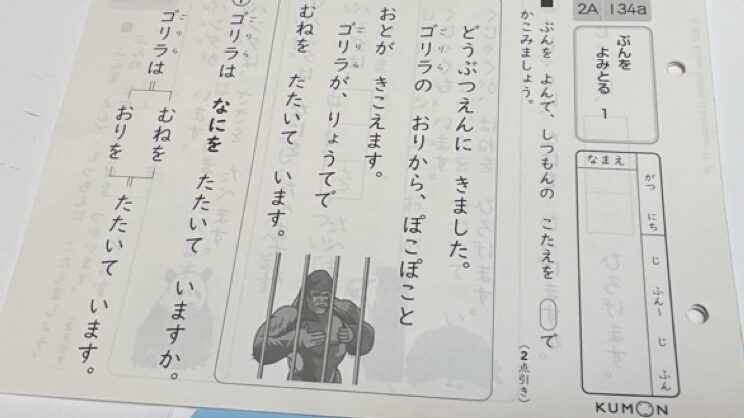 2A 134a
ぶんを
よみとる 1
なまえ
がつ にち
じ ふん〜 じ ふん
■ ぶんを よんで、しつもんの こたえを ◯で
かこみましょう。
(2点引き)
どうぶつえんに きました。
ゴリラの おりから、ぽこぽこと
ごりら
おとが きこえます。
ゴリラが、りょうてで
ごりら
むねを たたいて います。
① ゴリラは なにを たたいて いますか。
ごりら
ゴリラは むねを おりを たたいて います。
ごりら
KUMON